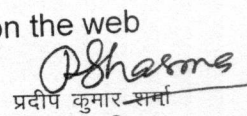 on the web
PSharma
प्रदीप कुमार शर्मा